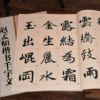 雲騰致雨
露結為霜
金生麗水
玉出崐岡
赵孟頫楷书千字文